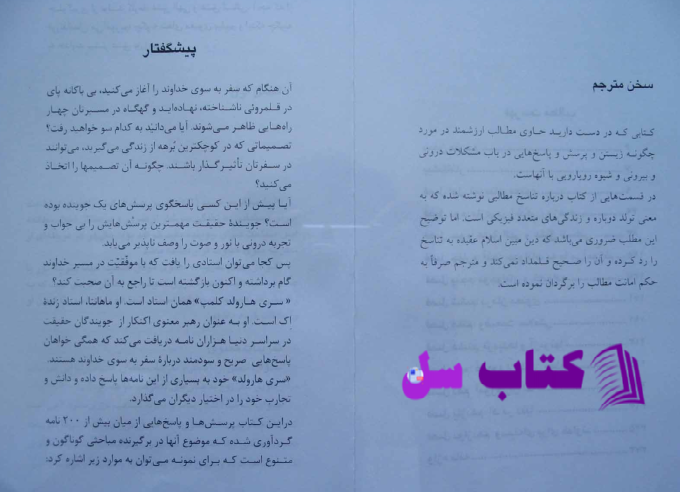 سخن مترجم
کتابی که در دست دارید حاوی مطالب ارزشمند در مورد
چگونه زیستن و پرسش و پاسخ‌هایی در باب مشکلات درونی
و بیرونی و شیوه رویارویی با آنهاست.
در قسمت‌هایی از کتاب درباره تناسخ مطالبی نوشته شده که به
معنی تولد دوباره و زندگی‌های متعدد فیزیکی است. اما توضیح
این مطلب ضروری می‌باشد که دین مبین اسلام عقیده به تناسخ
را رد کرده و آن را صحیح قلمداد نمی‌کند و مترجم صرفاً به
حکم امانت مطالب را برگردان نموده است.
کتاب سل
پیشگفتار
آن هنگام که سفر به سوی خداوند را آغاز می‌کنید، بی باکانه پای
در قلمروئی ناشناخته، نهاده‌اید و گهگاه در مسیرتان چهار
راه‌هایی ظاهر می‌شوند. آیا می‌دانید به کدام سو خواهید رفت؟
تصمیماتی که در کوچکترین بُرهه از زندگی می‌گیرید، می‌توانند
در سفرتان تأثیرگذار باشند. چگونه آن تصمیمها را اتخاذ
می‌کنید؟
آیا پیش از این کسی پاسخگوی پرسش‌های یک جوینده بوده
است؟ جویندهٔ حقیقت مهمترین پرسش‌هایش را بی جواب و
تجربه درونی با نور و صوت را وصف ناپذیر می‌یابد.
پس کجا می‌توان استادی را یافت که با موفقیّت در مسیر خداوند
گام برداشته و اکنون بازگشته است تا راجع به آن صحبت کند؟
«سری هارولد کلمپ» همان استاد است. او ماهانتا، استاد زندهٔ
اک است. او به عنوان رهبر معنوی اکنکار از جویندگان حقیقت
در سراسر دنیا هزاران نامه دریافت می‌کند که همگی خواهان
پاسخ‌هایی صریح و سودمند دربارهٔ سفر به سوی خداوند هستند.
«سری هارولد» خود به بسیاری از این نامه‌ها پاسخ داده و دانش و
تجارب خود را در اختیار دیگران می‌گذارد.
دراین کتاب پرسش‌ها و پاسخ‌هایی از میان بیش از ۲۰۰ نامه
گردآوری شده که موضوع آنها در برگیرنده مباحثی گوناگون و
متنوع است که برای نمونه می‌توان به موارد زیر اشاره کرد: